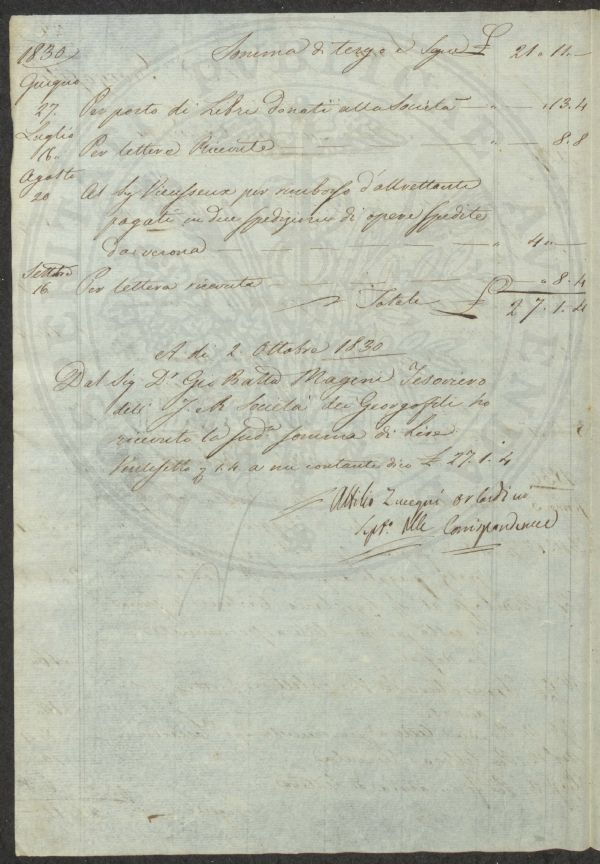 1830 Somma di tergo e segue £ 21 " 11 "–
Giugno
27. Per porto di Libri donati alla Società — " — " 13.4
Luglio
16. Per lettere Ricevute — " 8.8
Agosto
20 Al Sig Vieusseux per rimborso d'altrettante
pagate in due spedizioni di opere spedite
da verona — " 4 " —
Settbre
16. Per lettera ricevuta — " 8.4
Totale £ 27.1.4
A di 2. Ottobre 1830
Dal Sig Dr Gio Batta Mageri Tesoriero
dell' I. R. Società dei Georgofili ho
ricevuto la sudta somma di Lire
Ventisette 1.4 a me contante dico £ 27.1.4
Attilio Zuccagni Orlandini
Segr. delle Corrispondenze